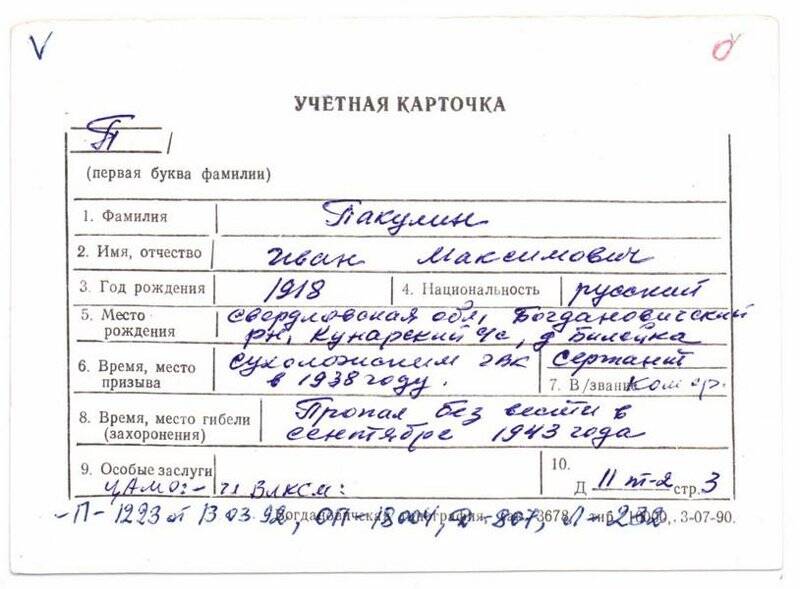 УЧЕТНАЯ КАРТОЧКА
П /
(первая буква фамилии)
1. Фамилия Пакулин
2. Имя, отчество Иван Максимович
3. Год рождения 1918 4. Национальность русский
5. Место рождения Свердловская обл, Богдановичский
рн, Кунарский с/с, д Билейка
6. Время, место призыва Сухоложским ГВК
в 1938 году.
Сержант
7. В/звание Ком ор.
8. Время, место гибели (захоронения) Пропал без вести в
сентябре 1943 года
9. Особые заслуги
10.
Д 11 т-2 стр. 3
ЦАМО:- чл ВЛКСМ:
-П- 1223 от 13.03.92, ОП 18004, Д-807, Л-232
Богдановичская типография, 3678 тир. 3-07-90.